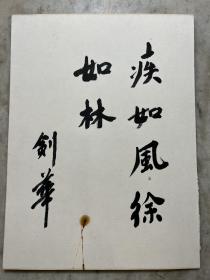 疾如風徐
如林
劍華